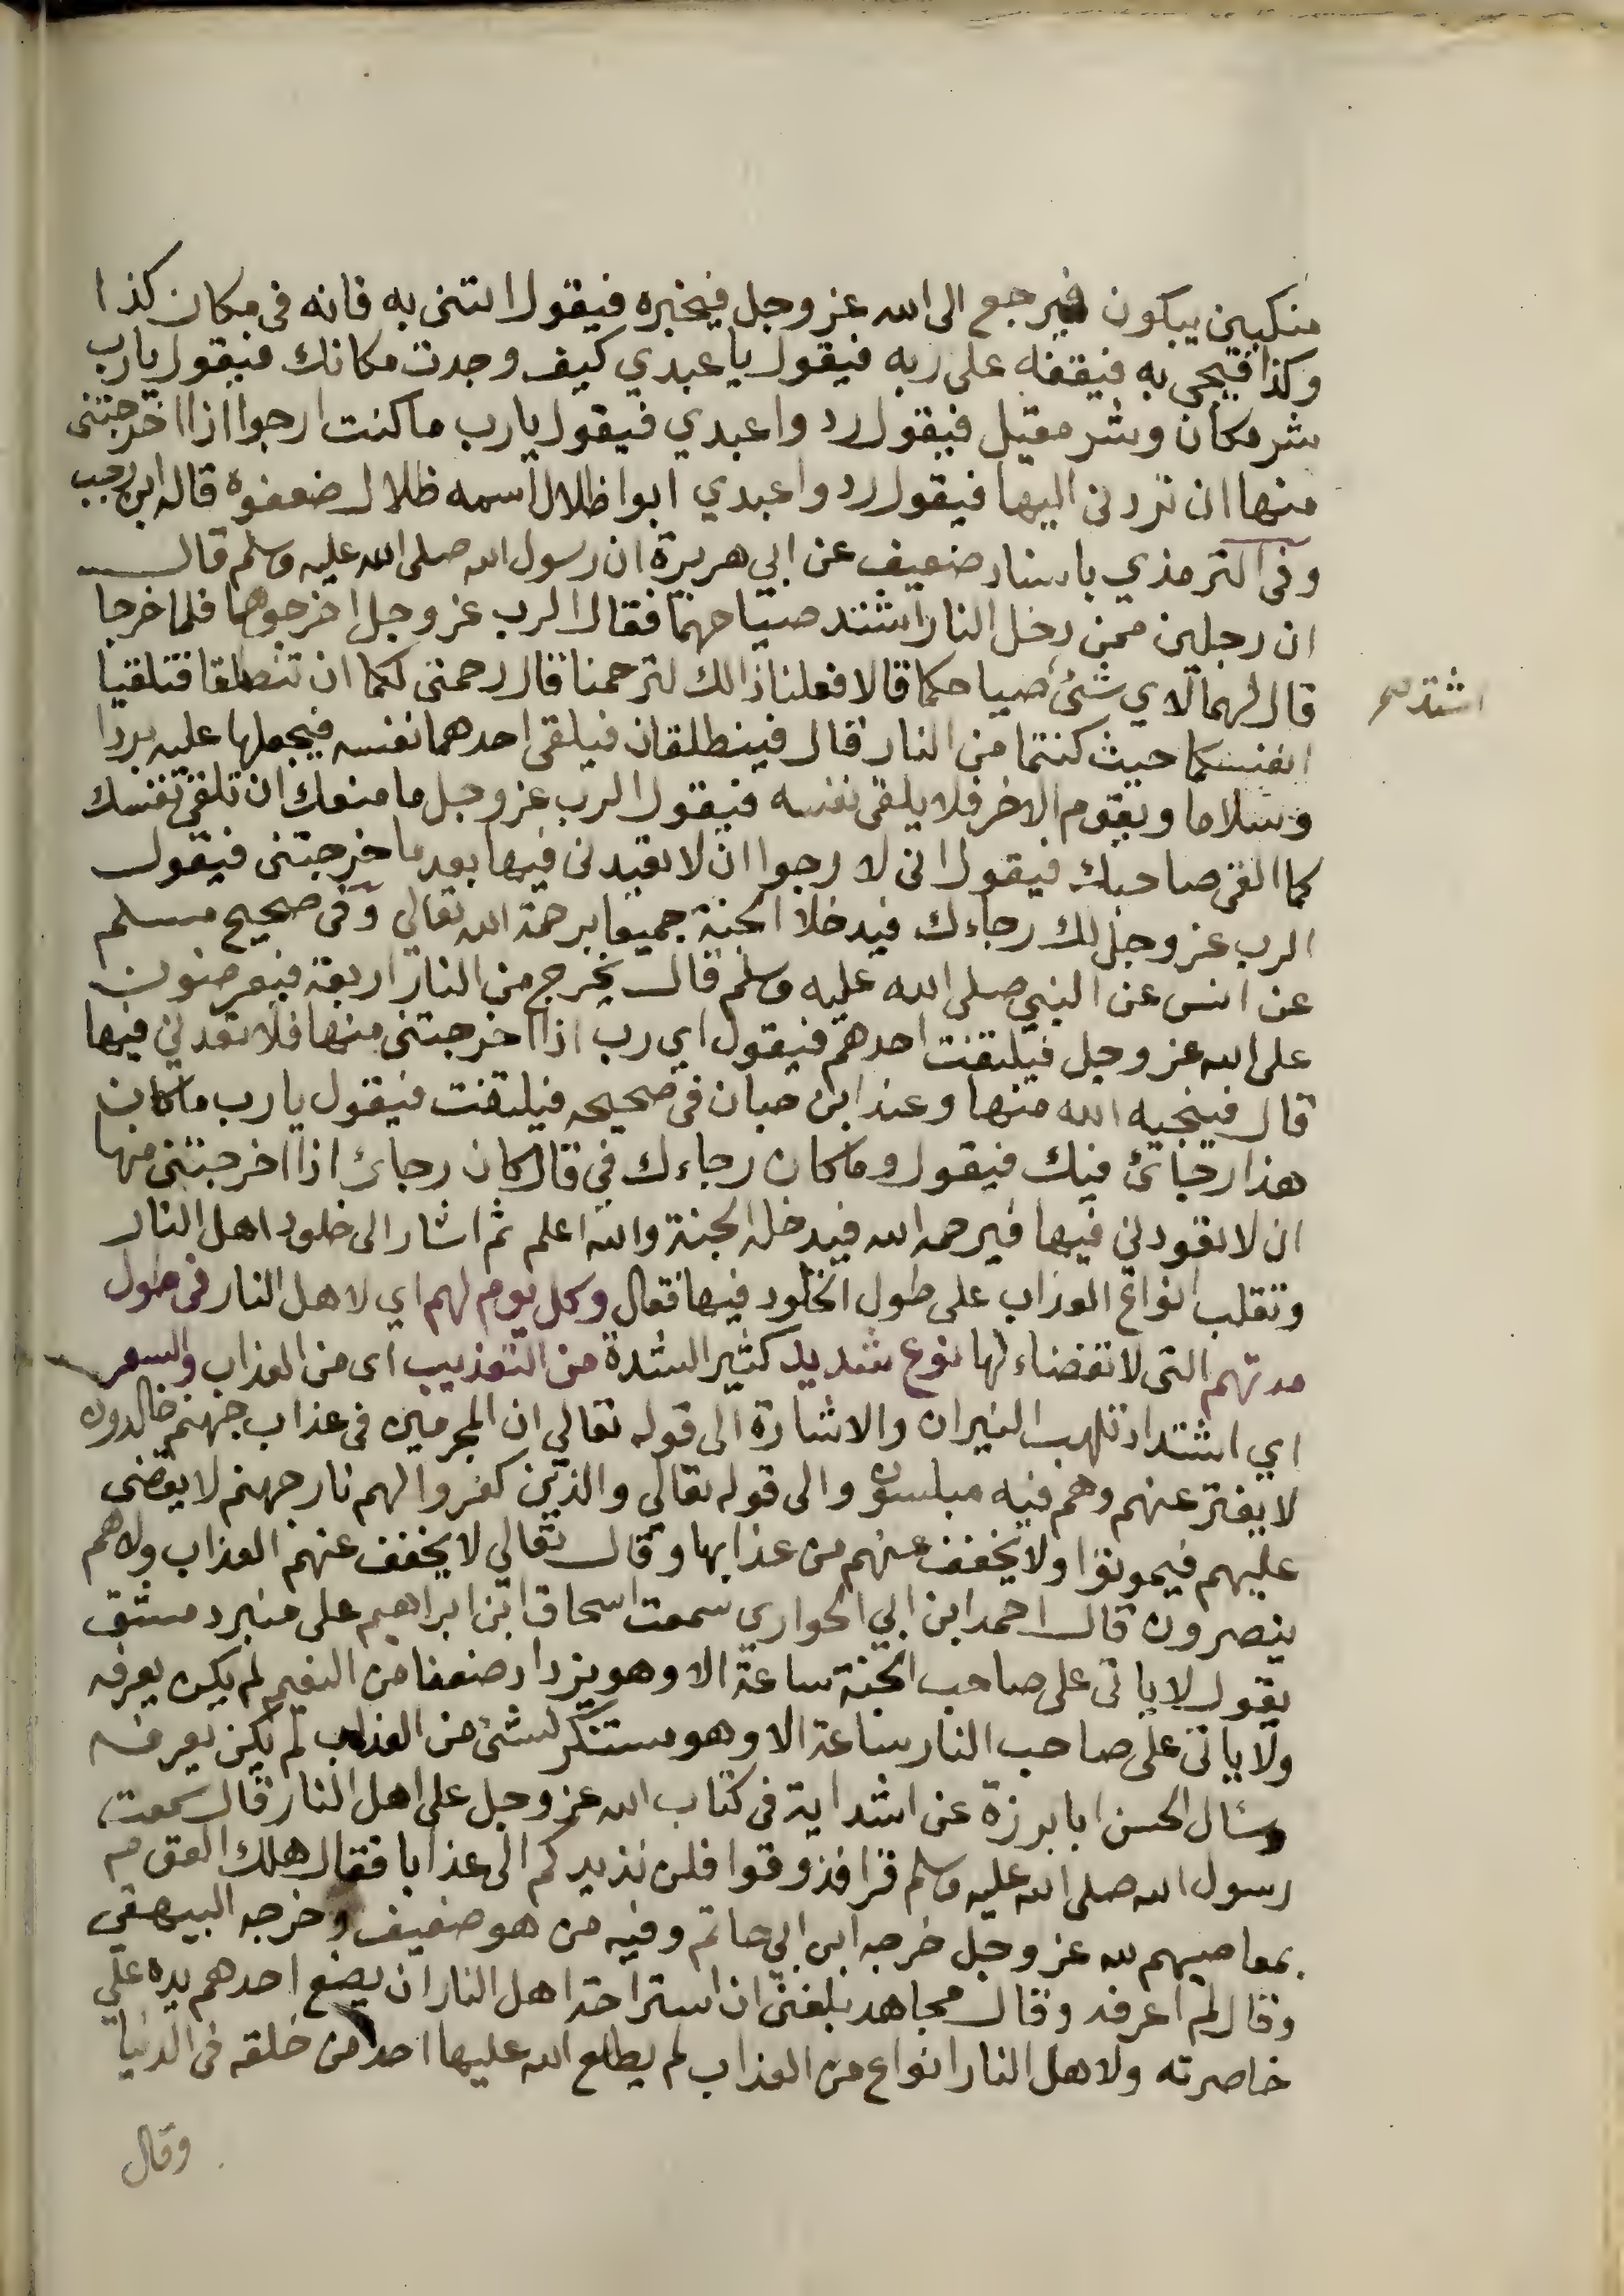 منكبين يبكون فيرجع الى الله عز وجل فيخبره فيقول ائتنى به فانه فى مكان كذا
وكذا فيجى به فيقفه على ربه فيقول يا عبدي كيف وجدت مكانك فيقول يارب
شر مكان وشر مقيل فيقول ردوا عبدي فيقول يارب ما كنت ارجوا اذا اخرجتنى
منها ان تردنى اليها فيقول ردوا عبدي ابوا ظلال اسمه ظلال ضعفوه قاله ابن رجب
وفى الترمذي باسناد ضعيف عن ابي هريرة ان رسول الله صلى الله عليه وسلم قال
ان رجلين ممن دخل النار اشتد صياحهما فقال الرب عز وجل اخرجوهما فلما خرجا
قال لهما لاي شئ صياحكما قالا فعلنا ذالك لترحمنا قال رحمتى لكما ان تنطلقا فتلقيا
اشتد
انفسكما حيث كنتما من النار قال فينطلقان فيلقى احدهما نفسه فيجعلها عليه بردا
وسلاما ويقوم الاخر فلا يلقى نفسه فيقول الرب عز وجل ما منعك ان تلقى نفسك
كما القى صاحبك فيقول انى لا رجوا ان لا تعيدنى فيها بعد ما خرجتنى فيقول
الرب عز وجل لك رجاءك فيدخلا الجنة جميعا برحمة الله تعالى وفى صحيح مسلم
عن انس عن النبي صلى الله عليه وسلم قال يخرج من النار اربعة فيعرضون
على الله عز وجل فيلتفت احدهم فيقول اي رب اذا اخرجتنى منها فلا تعدني فيها
قال فينجيه الله منها وعند ابن حبان فى صحيحه فيلتفت فيقول يا رب ما كان
هذا رجائ فيك فيقول وما كان رجاءك في قال كان رجائ اذا اخرجتنى منها
ان لا تعودني فيها فيرحمه الله فيدخله الجنة والله اعلم ثم اشار الى خلود اهل النار
وتقلب انواع العذاب على طول الخلود فيها فقال وكل يوم لهم اي لاهل النار فى طول
مدتهم التى لا نقضاء لها نوع شديد كثير الشدة من التعذيب اى من العذاب والسعر
اي اشتداد تلهب النيران والاشارة الى قوله تعالي ان المجرمين فى عذاب جهنم خالدون
لا يفتر عنهم وهم فيه مبلسون والى قوله تعالي والذين كفروا لهم نار جهنم لا يقضى
عليهم فيموتوا ولا يخفف عنهم من عذابها وقال تعالي لا يخفف عنهم العذاب ولاهم
ينصرون قال احمد ابن ابي الحواري سمعت اسحاق ابن ابراهيم على منبر دمشق
يقول لا ياتى على صاحب الجنة ساعة الا وهو يزداد ضعفا من النعيم لم يكن يعرفه
ولا ياتى على صاحب النار ساعة الا وهو مستنكر لشئ من العذاب لم يكن يعرفه
وسئال الحسن ابا برزة عن اشد اية فى كتاب الله عز وجل على اهل النار قال سمعت
رسول الله صلى الله عليه وسلم قرا فذوقوا فلن نذيدكم الى عذابا فقال هلك القوم
بمعاصيهم لله عز وجل خرجه ابن ابي حاتم وفيه من هو ضعيف وخرجه البيهقى
وقال لم اعرفه وقال مجاهد بلغنى ان استراحة اهل النار ان يضع احدهم يده على
خاصرته ولاهل النار انواع من العذاب لم يطلع الله عليها احدا من خلقه فى الدنيا
وقال